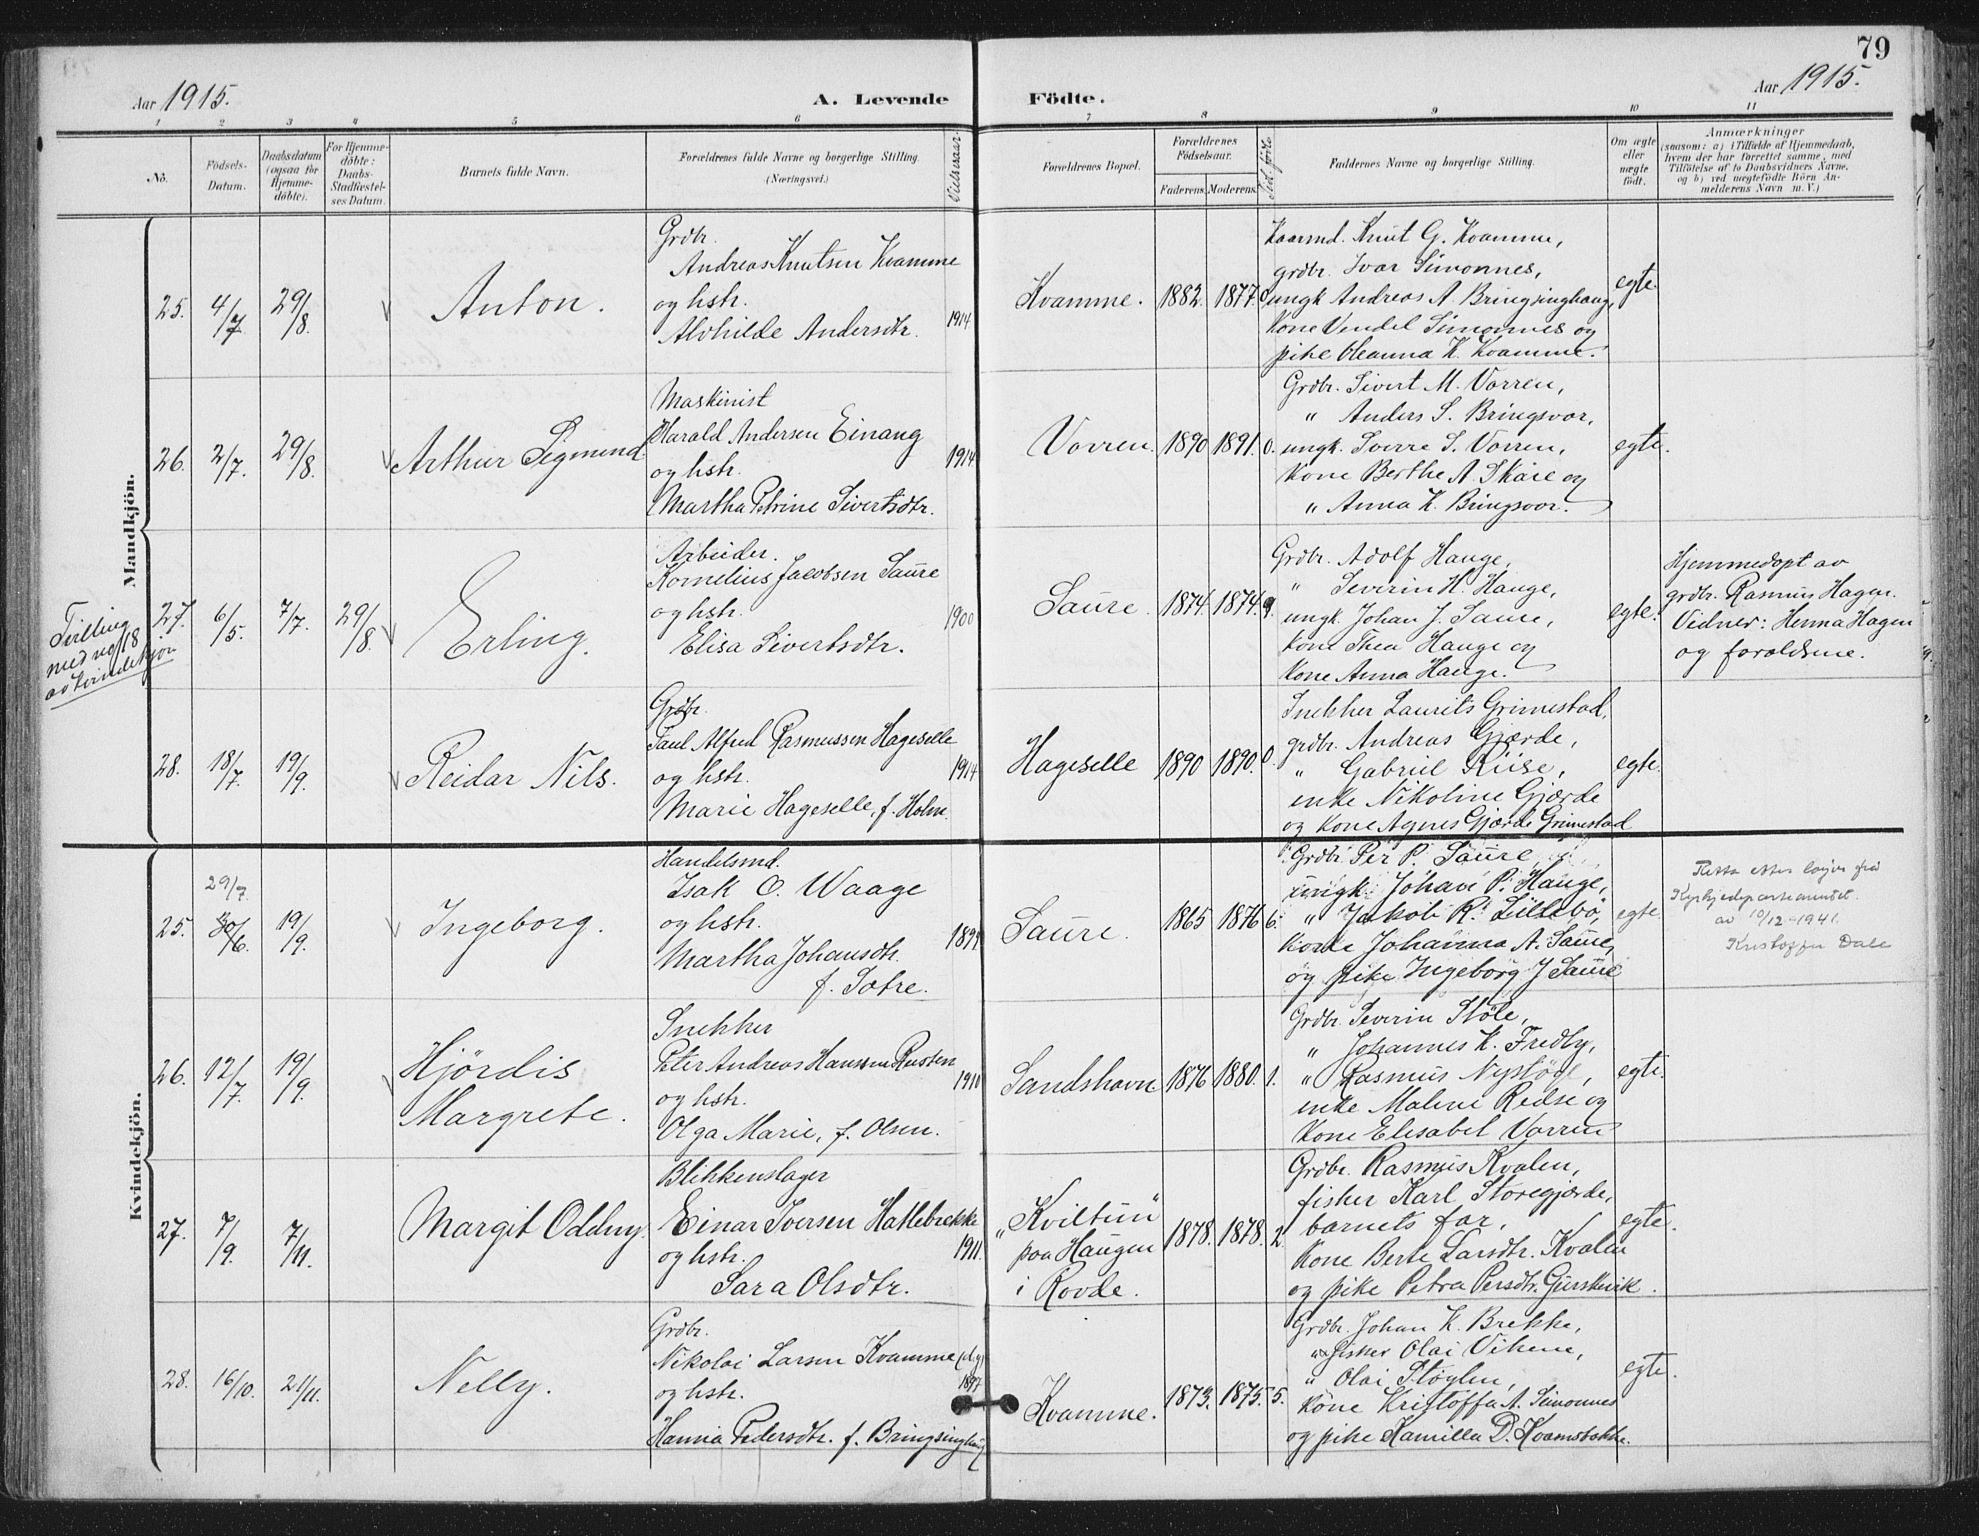 79
Aar 1915.
A. Levende Födte.
Aar 1915.
1 2 3 4 5 6 7 8 9 10 11
No.
Födsels-Datum.
Daabsdatum (ogsaa for Hjemme-döbte).
For Hjemme-döbte: Daabs-Stadfæstel-ses Datum.
Barnets fulde Navn.
Forældrenes fulde Navne og borgerlige Stilling.
(Næringsvei.)
Vielsesaar.
Forældrenes Bopæl.
Forældrenes Födselsaar.
Faderens. Moderens.
Faddernes Navne og borgerlige Stilling.
Om ægte eller uægte födt.
Anmærkninger
(saasom: a) i Tilfælde af Hjemmedaab, hvem der har forrettet samme, med Tilföielse af to Daabsvidners Navne, og b) ved uægtefödte Börn An-melderens Navn m. V.)
Mandkjön.
25. 4/7 29/8. Anton.
Grdbr.
Andreas Knutsen Kvamme
og hstr.
Alvhilde Andersdtr.
1914
Kvamme. 1882. 1877. 0
Kaarmd. Knut G. Kvamme,
grdbr. Ivar Simonnes,
ungk Andreas A. Bringsinghaug,
Kone Vendel Simonnes og
pike Oleanna K. Kvamme.
egte.
26. 2/7. 29/8. Arthur Sigmund
Maskinist
Harald Andersen Einang
og hstr.
Martha Petrine Sivertsdtr.
1914
Vorren. 1890 1891. 0.
Grdbr. Sivert M. Vorren,
" Anders S. Bringsvor,
ungk. Sverre S. Vorren,
Kone Berthe A. Skare og
" Anna K. Bringsvor.
egte.
Tvilling
med no 18
av kvindekjön
27. 6/5. 7/7. 29/8. Erling.
Arbeider.
Kornelius Jacobsen Saure
og hstr.
Elisa Sivertsdtr.
1900
Saure. 1874. 1874. 9.
Grdbr. Adolf Hauge,
" Severin H. Hauge,
ungk. Johan J. Saure,
kone Thea Hauge og
Kone Anna Hauge.
egte.
Hjemmedöpt av
grdbr. Rasmus Hagen.
Vidner: Henna Hagen
og foroldrene.
28. 18/7. 19/9. Reidar Nils.
Grdbr.
Paul Alfred Rasmussen Hageselle
og hstr.
Marie Hageselle, f. Holm.
1914
Hageselle 1890 1890. 0.
Snekker Laurits Grimestad,
grdbr. Andreas Gjærde,
" Gabriel Riise,
enke Nikoline Gjærde
og Kone Agnes Gjærde Grimestad
egte.
Kvindekjön.
25. 29/7 30/6. 19/9. Ingeborg.
Handelsmd.
Isak O. Waage
og hstr.
Martha Johansdtr.
f. Sætre.
Saure. 1865 1876 6.
Grdbr. Per P. Saure,
ungk. Johan P. Hauge,
" Jakob R. Lillebö,
Kone Johanna A. Saure,
og pike Ingeborg J Saure
egte.
Retta etter löyve frå
Kyrkjedepartementet
av 10/12-1941.
Kristoffer Dale
26. 12/7. 19/9. Hjördis
Margrete.
Snekker
Peter Andreas Hanssen Rusten
og hstr.
Olga Marie, f. Olsen.
1910
Sandshavn 1876 1880. 1.
Grdbr. Severin Stöle,
" Johannes K. Fredly,
" Rasmus Nystöle,
enke Malene Redse og
Kone Elisabet Vorren
egte.
27. 7/9. 7/11. Margit Oddny.
Blikkenslager
Einar Iversen Hatlebrekke
og hstr.
Sara Olsdtr.
1911.
"Kviltun"
paa Haugen
i Rovde.
1878. 1878. 2.
Grdbr. Rasmus Kvalen,
fisker Karl Storegjærde,
barnets far,
Kone Berte Larsdtr. Kvalen
og pike Petra Persdtr. Gurskevik.
egte.
28. 16/10. 21/11. Nelly.
Grdbr.
Nikolai Larsen Kvamme
og hstr.
Hanna Pedersdtr. f. Bringsinghaug
1897
Kvamme. 1873. 1875. 5.
Grdbr. Johan K. Brekke,
fisker Olai Vikene,
" Olai Stöylen,
Kone Kristoffa A. Simonnes
og pike Kamilla D. Kvamsbakke.
egte.